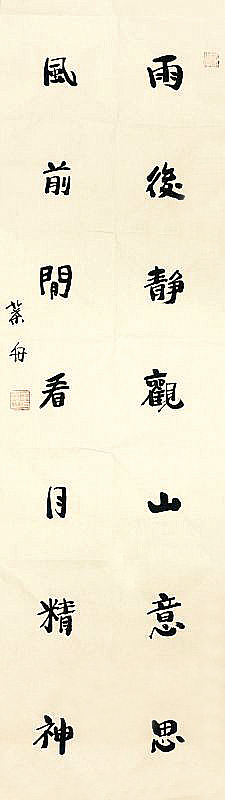 雨後靜觀山意思
風前閒看月精神